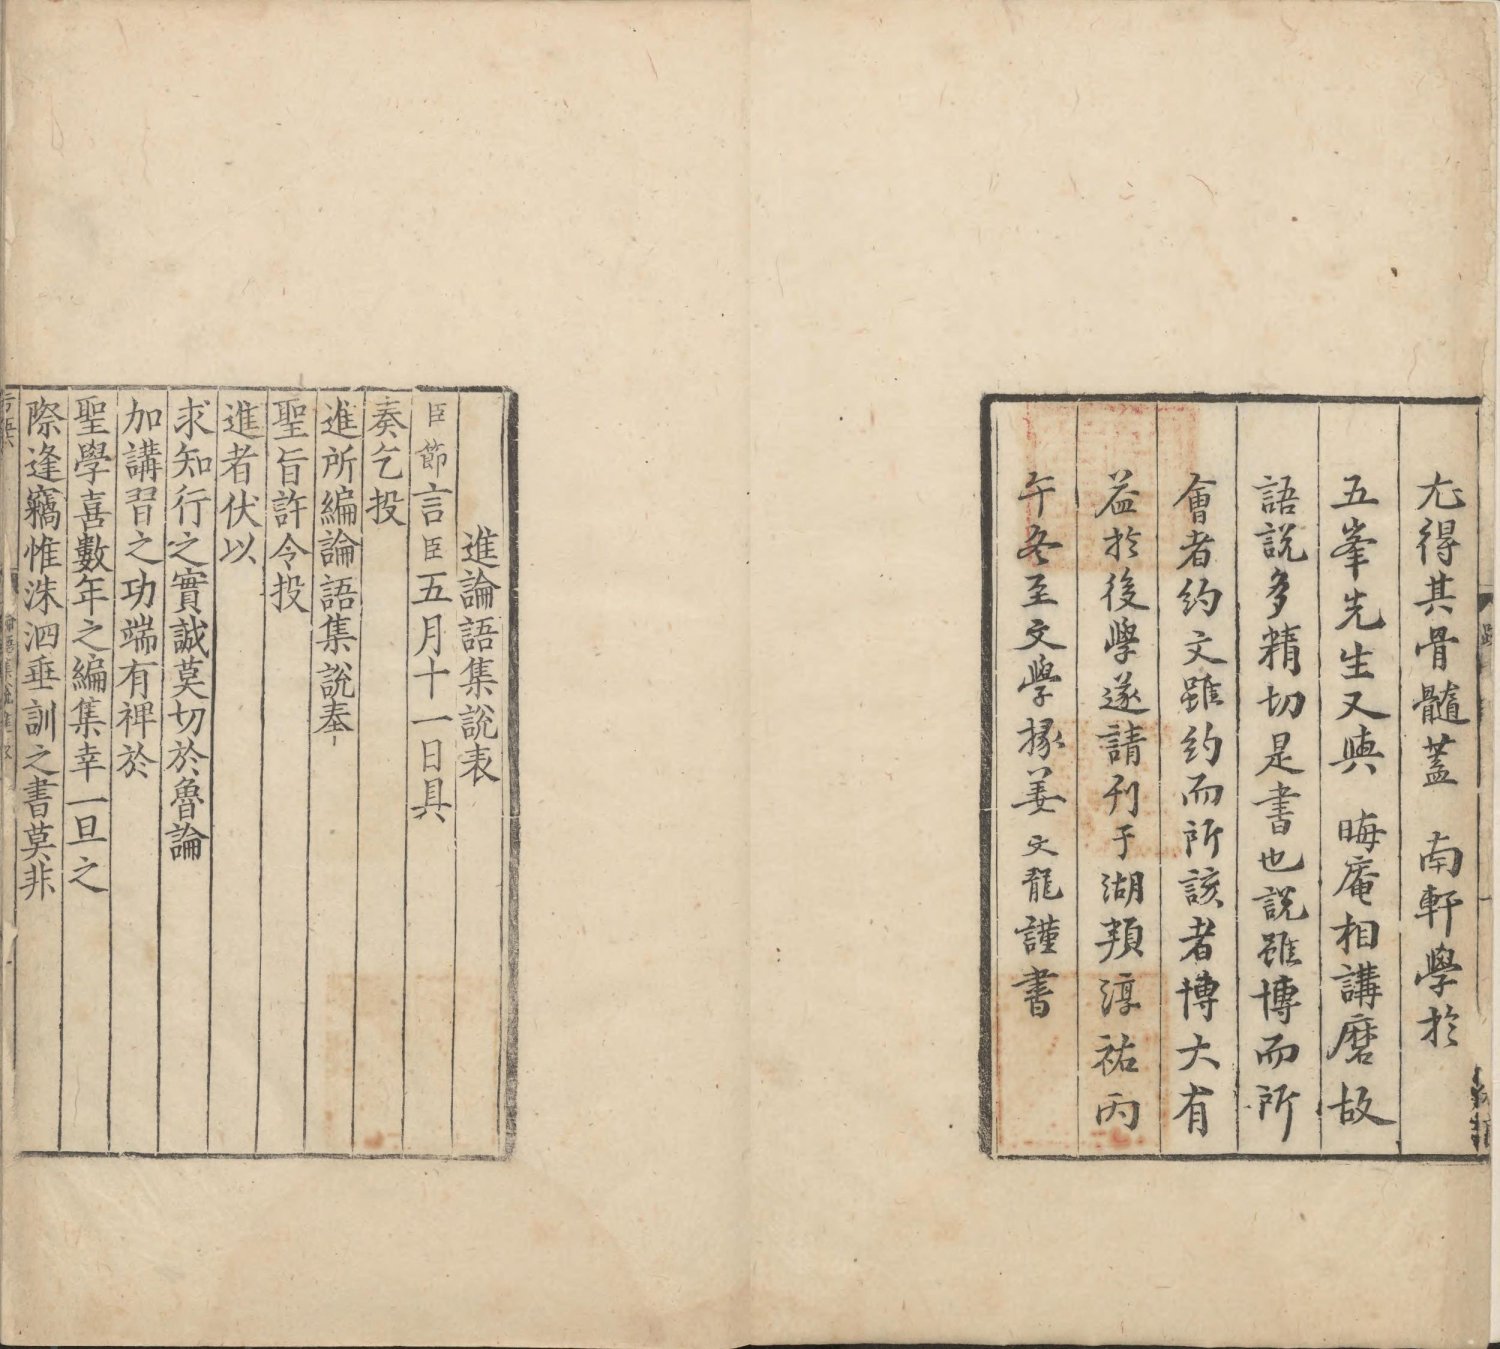 尤得其骨髓蓋 南軒學於
五峯先生又與 晦庵相講磨故
語説多精切是書也説雖博而所
會者約文雖約而所該者博大有
益於後學遂請刊于湖頖淳祐丙
午冬至文學掾姜文龍謹書
進論語集說表
臣節言臣五月十一日具
奏乞投
進所編論語集說奉
聖旨許令投
進者伏以
求知行之實誠莫切於魯論
加講習之功端有裨於
聖學喜數年之編集幸一旦之
際逢竊惟洙泗垂訓之書莫非